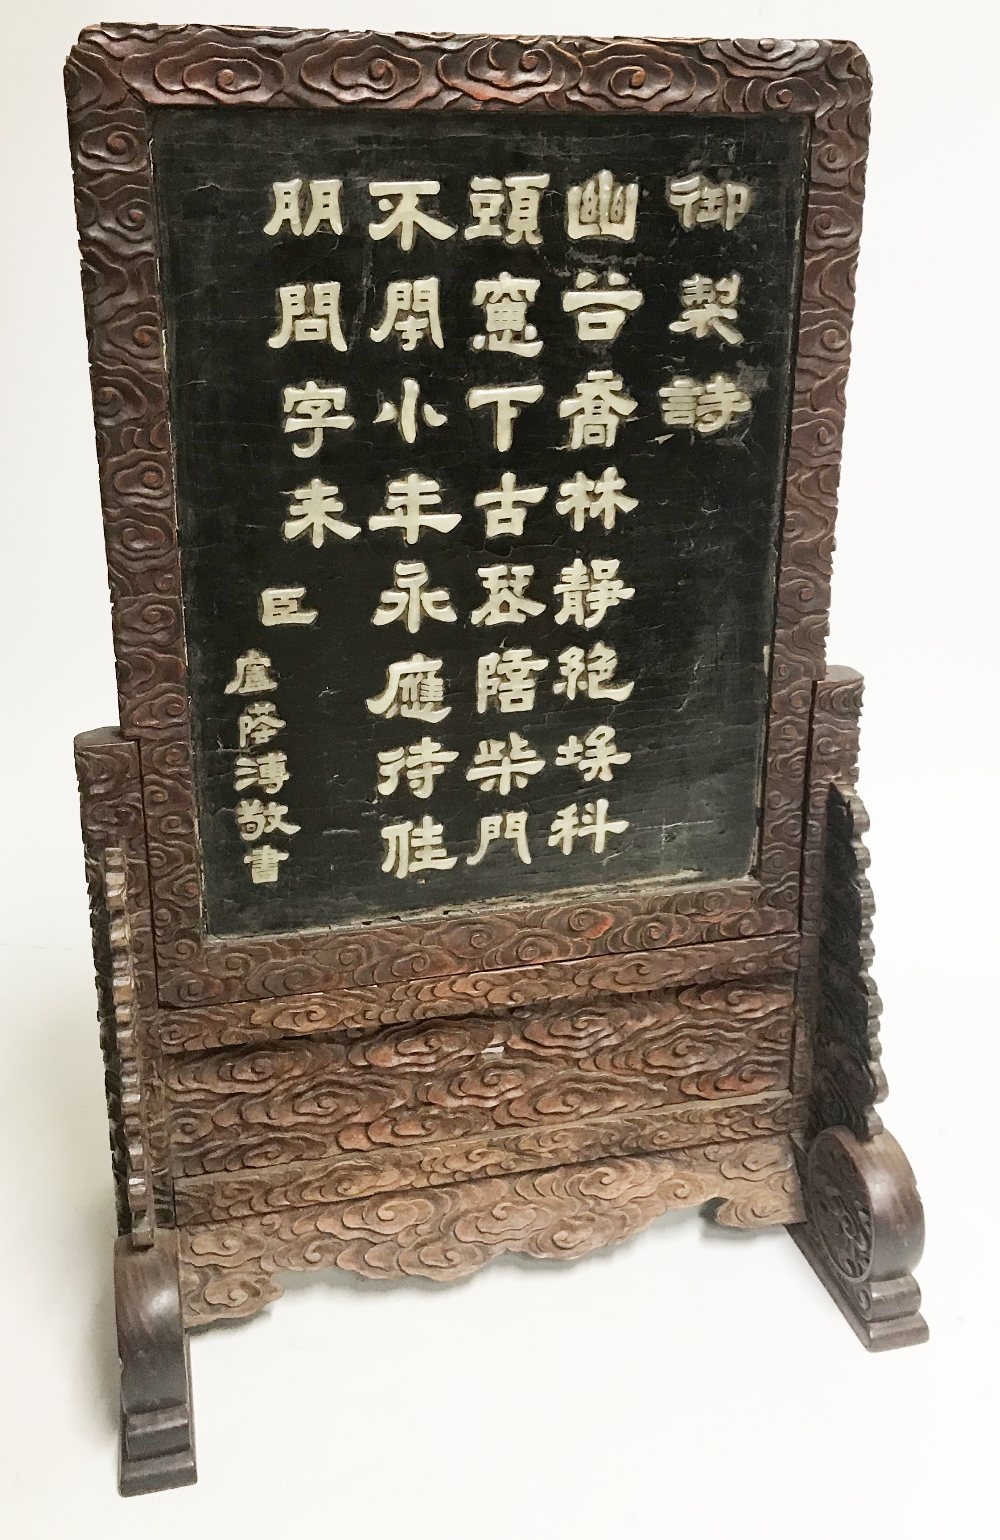 御製詩
幽谷喬林靜絶埃科
頭窻下古琴陪柴門
不閉小年永應待佳
朋問字来
臣盧蔭溥敬書